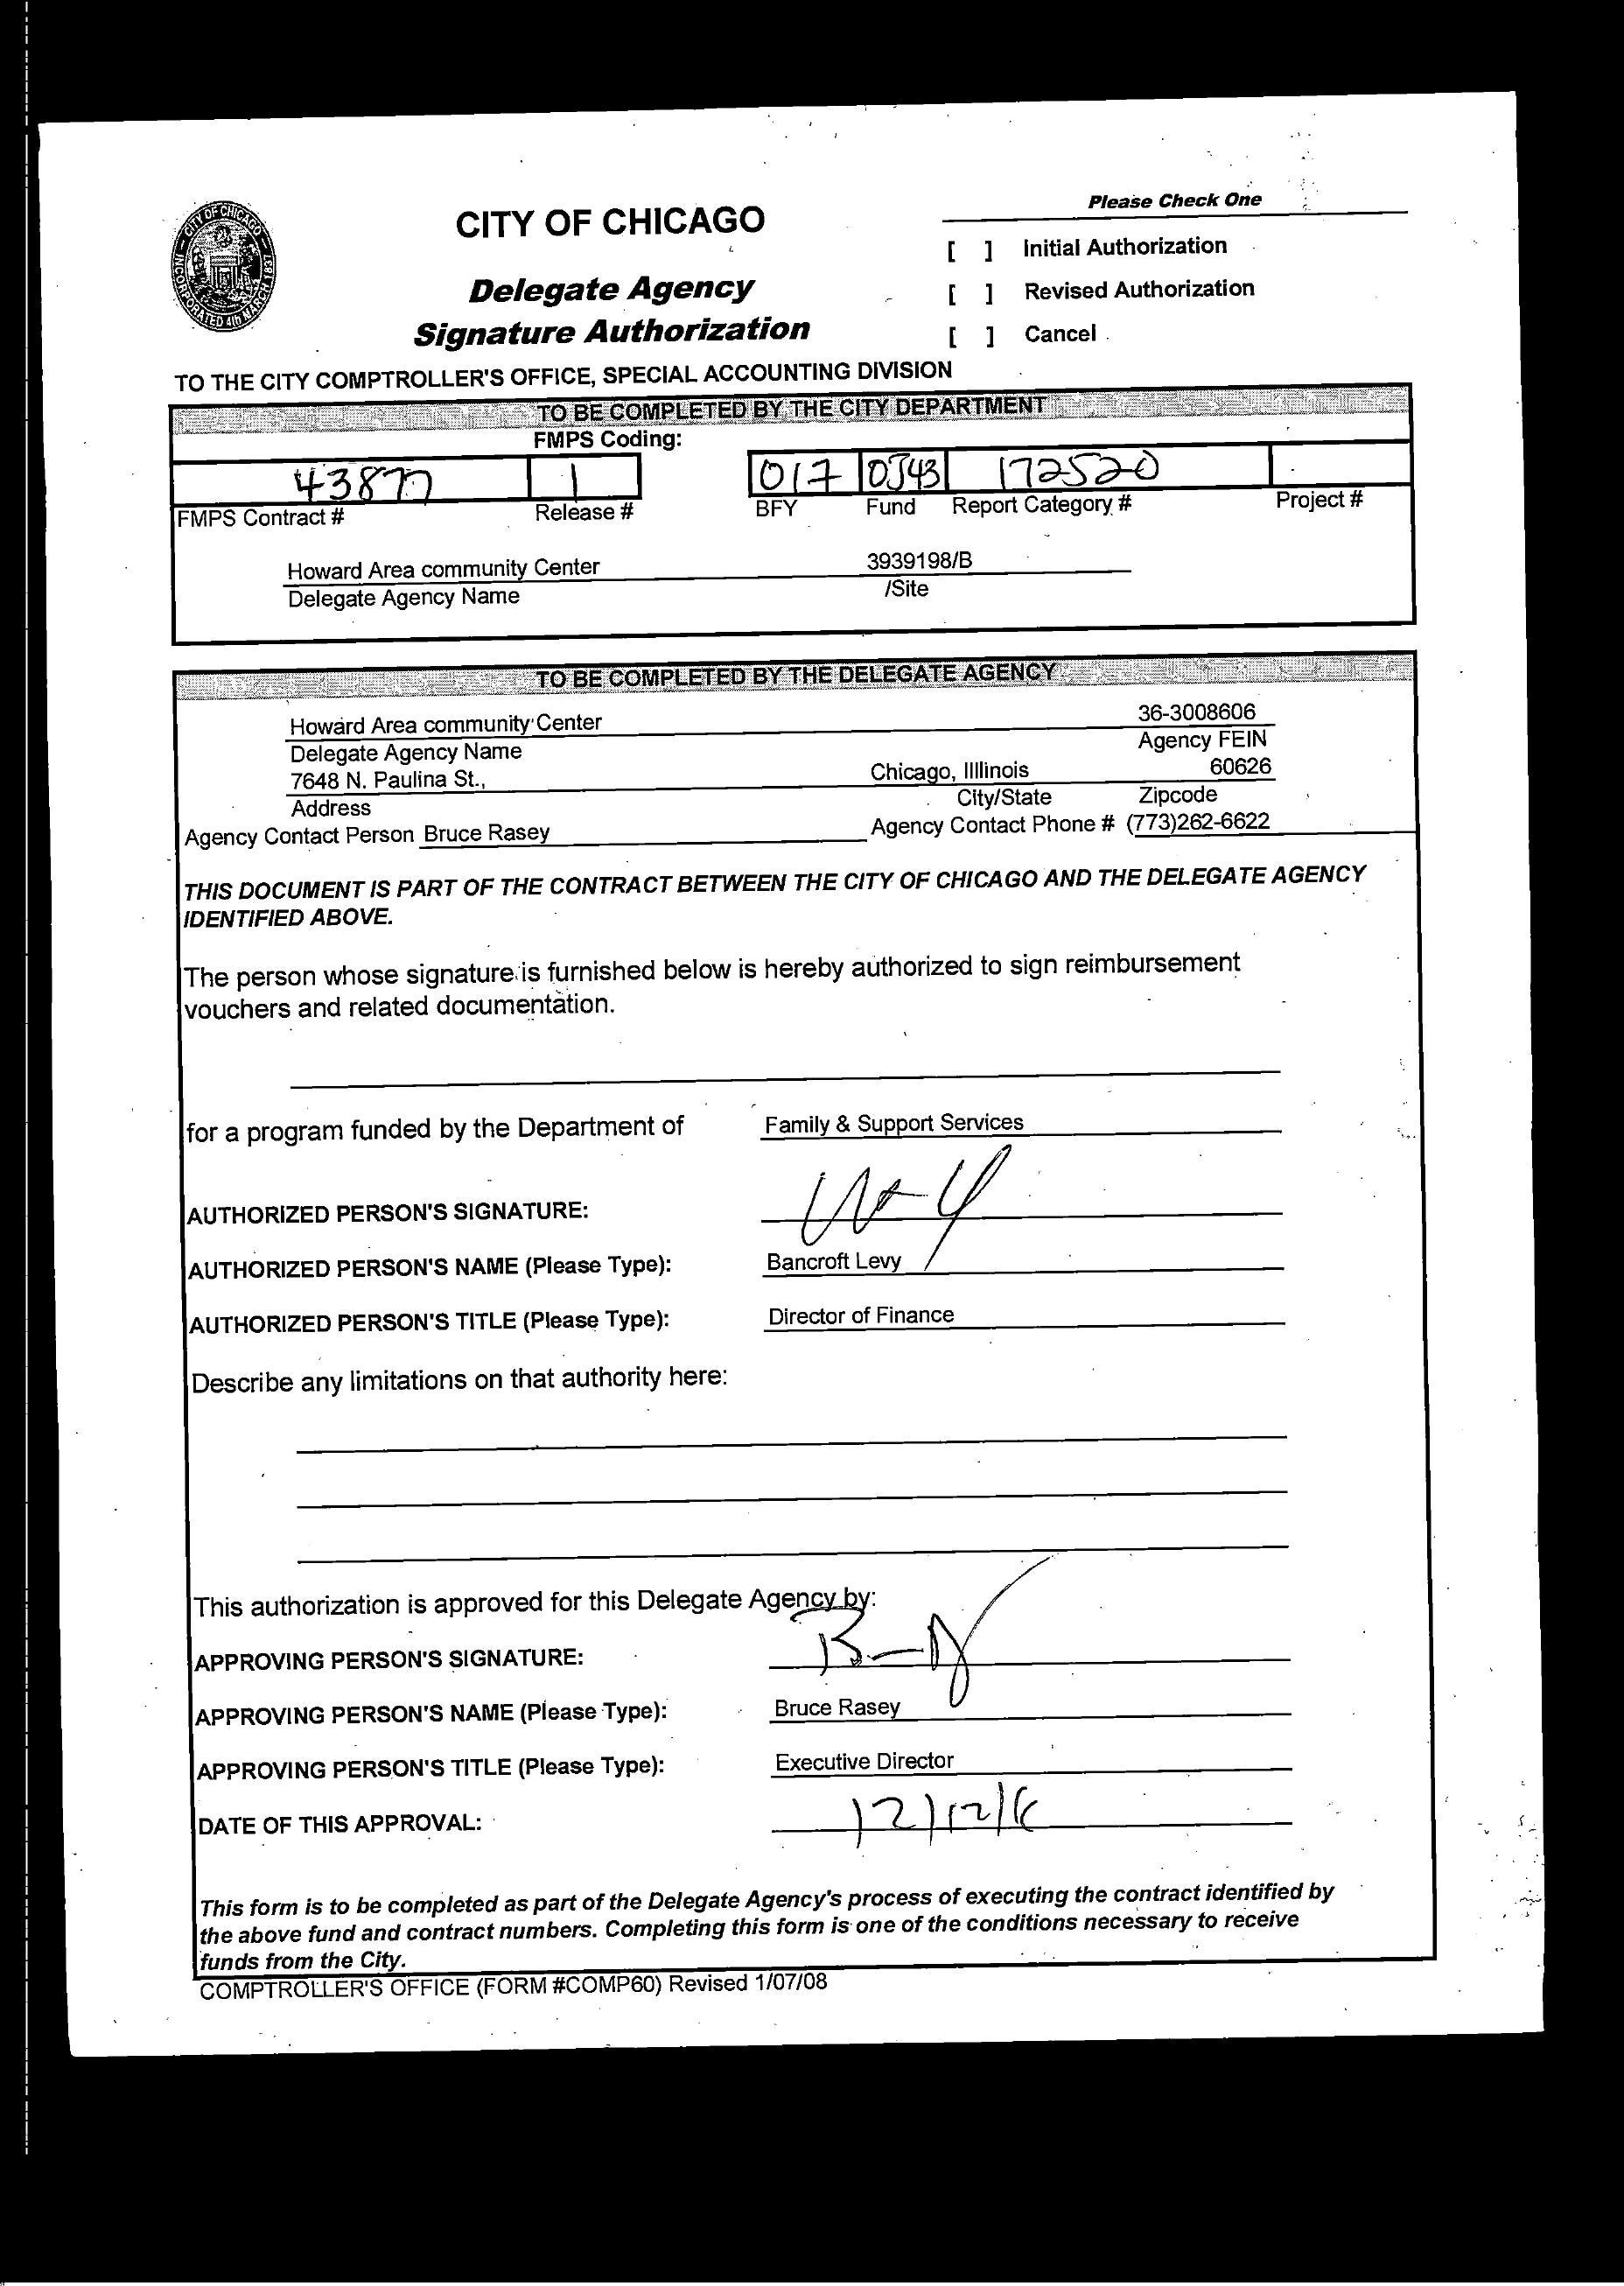 CITY OF CHICAGO
INCORPORATED 4th MARCH 1837
CITY OF CHICAGO
Delegate Agency
Signature Authorization
Please Check One
[ ] Initial Authorization
[ ] Revised Authorization
[ ] Cancel
TO THE CITY COMPTROLLER'S OFFICE, SPECIAL ACCOUNTING DIVISION
TO BE COMPLETED BY THE CITY DEPARTMENT
FMPS Coding:
43877 1 017 0J43 172520
FMPS Contract # Release # BFY Fund Report Category # Project #
Howard Area community Center 3939198/B
Delegate Agency Name /Site
TO BE COMPLETED BY THE DELEGATE AGENCY
Howard Area community Center 36-3008606
Delegate Agency Name Agency FEIN
7648 N. Paulina St., Chicago, Illlinois 60626
Address City/State Zipcode
Agency Contact Person Bruce Rasey Agency Contact Phone # (773)262-6622
THIS DOCUMENT IS PART OF THE CONTRACT BETWEEN THE CITY OF CHICAGO AND THE DELEGATE AGENCY
IDENTIFIED ABOVE.
The person whose signature is furnished below is hereby authorized to sign reimbursement
vouchers and related documentation.
for a program funded by the Department of Family & Support Services
AUTHORIZED PERSON'S SIGNATURE:
AUTHORIZED PERSON'S NAME (Please Type): Bancroft Levy
AUTHORIZED PERSON'S TITLE (Please Type): Director of Finance
Describe any limitations on that authority here:
This authorization is approved for this Delegate Agency by:
APPROVING PERSON'S SIGNATURE:
APPROVING PERSON'S NAME (Please Type): Bruce Rasey
APPROVING PERSON'S TITLE (Please Type): Executive Director
DATE OF THIS APPROVAL: 12/12/
This form is to be completed as part of the Delegate Agency's process of executing the contract identified by
the above fund and contract numbers. Completing this form is one of the conditions necessary to receive
funds from the City.
COMPTROLLER'S OFFICE (FORM #COMP60) Revised 1/07/08